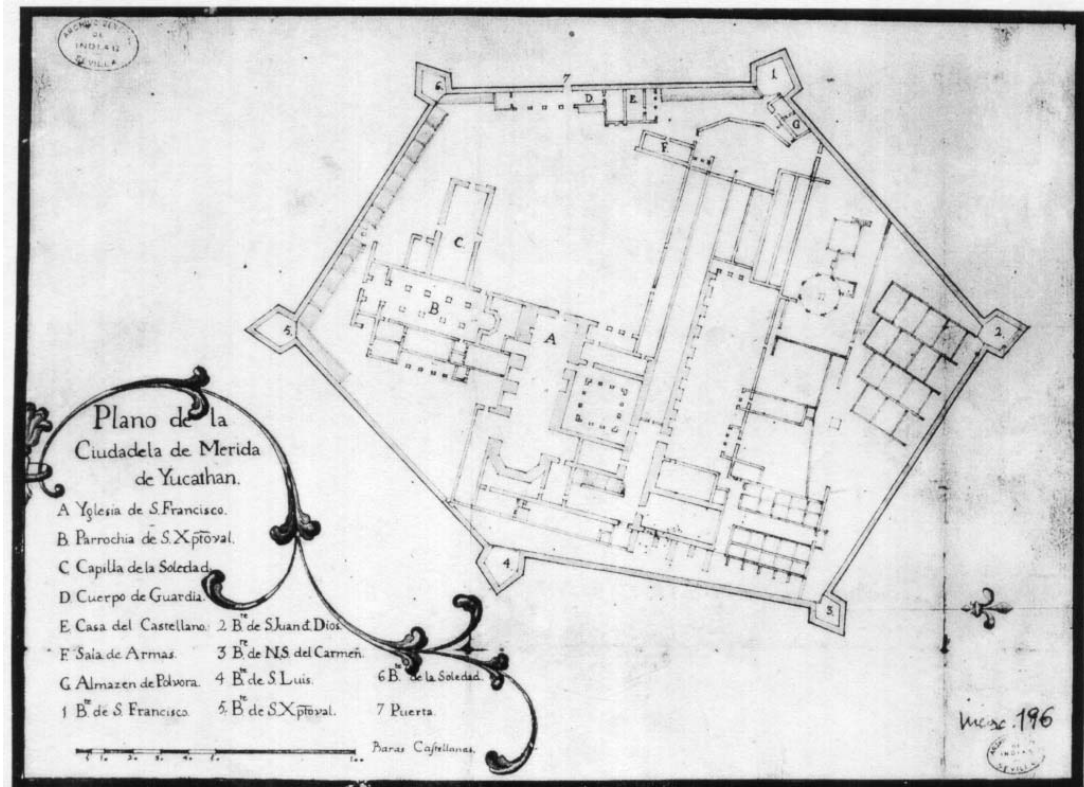 ARCHIVO GENERAL
DE
INDIAS
SEVILLA
6.
7
1.
D.
E.
G.
F.
C.
B
A
5.
2.
4.
3.
Plano de la
Ciudadela de Merida
de Yucathan.
A Yglesia de S. Francisco.
B. Parrochia de S. Xptoval.
C Capilla de la Soledad.
D. Cuerpo de Guardia.
E. Casa del Castellano.
F. Sala de Armas.
G. Almazen de Polvora.
1 Bte de S. Francisco.
2 Bte de S. Juan d Dios.
3 Bte de N.S. del Carmen.
4 Bte de S. Luis.
5. Bte de S. Xptoval.
6 Bte de la Soledad.
7 Puerta.
Baras Castellanas.
100
196
INDIAS
SEVILLA